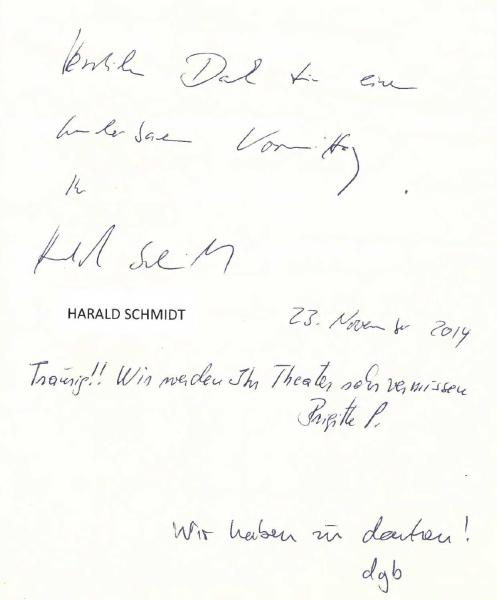 Herzlichen Dank für einen
wundersamen Vormittag
Ihr
Harald Schmidt
HARALD SCHMIDT
23. November 2014
Traurig!! Wir werden Ihr Theater sehr vermissen
Brigitte P.
Wir haben zu danken!
dgb